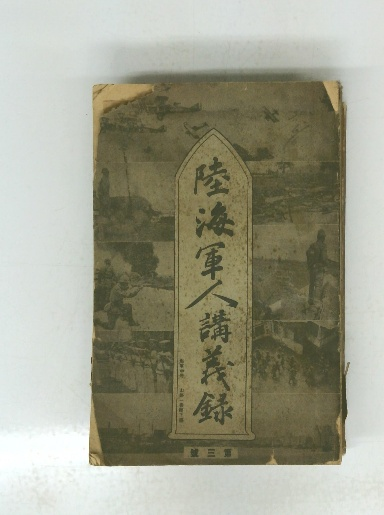 陸海軍人講義録
號三第